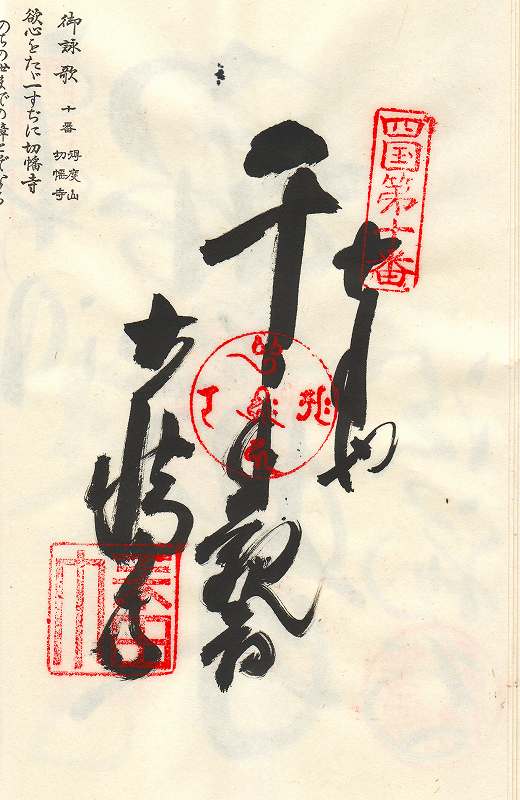 四国第十番
奉納
千手観音
切幡寺
御詠歌 十番 得度山 切幡寺
欲心をたゞ一すぢに切幡寺
のちの世までの障とぞなる